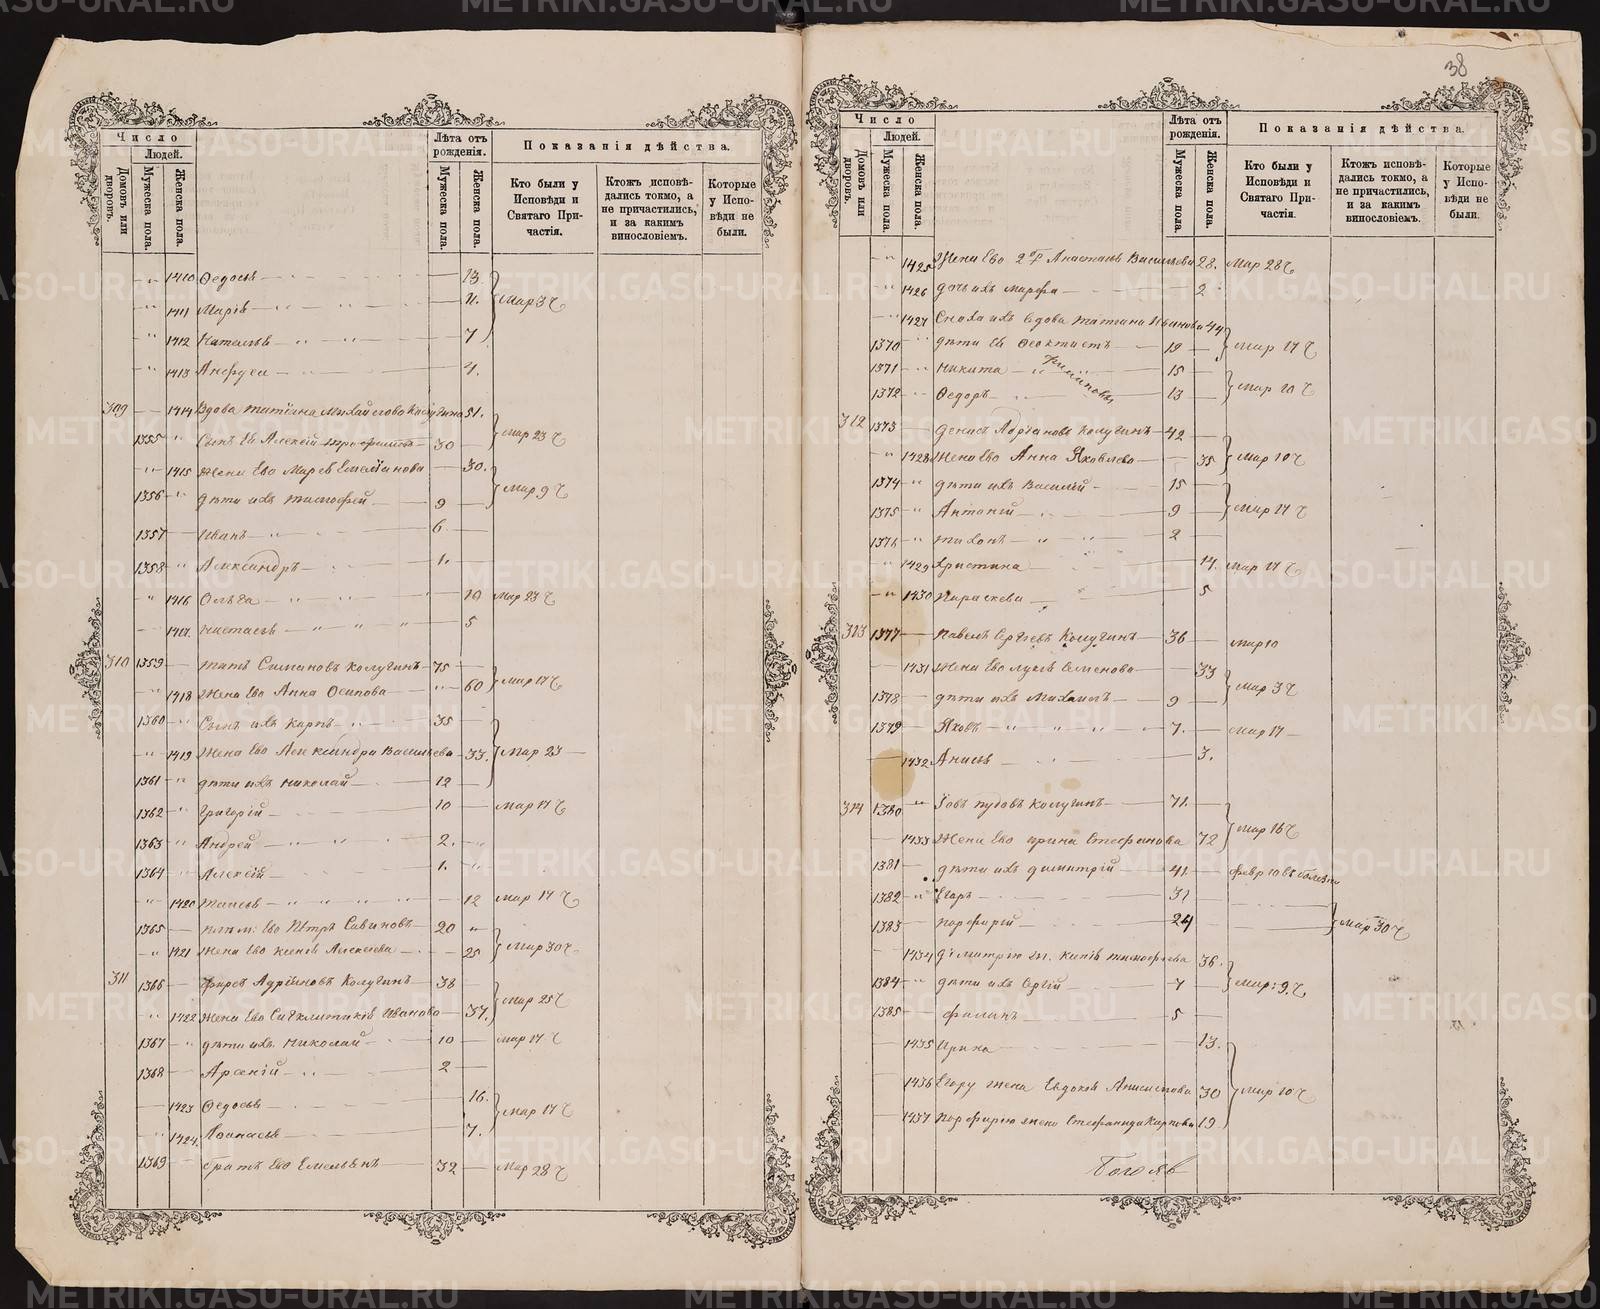 38
Число
Людей.
Домовъ или дворовъ.
Мужеска пола.
Женска пола.
Лѣта отъ рожденія.
Мужеска пола.
Женска пола.
Показанія дѣйства.
Кто были у Исповѣди и Святаго Причастія.
Ктожъ исповѣдались токмо, а не причастились, и за какимъ винословіемъ.
Которые у Исповѣди не были.
1410 Ѳедосья 13.
1411 Марія 11. Мар 3
1412 Наталья 7
1413 Анфуса 4.
309 1414 Вдова Татіяна Михайлова Калугина 51.
1355 Сынъ Ея Алексій 30 Мар 23
1415 Жена Ево Марѳа Емеліянова 30.
1356 дѣти ихъ Тимофей 9 Мар 9
1357 Иванъ 6
1358 Александръ 1.
1416 Ольга 10 Мар 23
1417 Настасья 5
310 1359 Симановъ Калугинъ 75
1418 Жена Ево Анна Осипова 60 Мар 17
1360 Сынъ ихъ Карпъ 35
1419 Жена Ево Александра Васильева 33. Мар 23
1361 дѣти ихъ Николай 12
1362 Григорій 10 Мар 17
1363 Андрей 2.
1364 Алексій 1.
1420 Таисья 12 Мар 17
1365 Ево Петръ Савиновъ 20
1421 Жена Ево Ксенія Алексѣева 25 Мар 30
311 1366 Фирсъ Адріяновъ Калугинъ 38
1422 Жена Ево Сигклитикія Иванова 37. Мар 25
1367 дѣти ихъ Николай 10 Мар 17
1368 Арсеній 2
1423 Ѳедосья 16.
1424 Аѳанасья 7. Мар 17
1369 братъ Ево Емельянъ 32 Мар 28
Число
Людей.
Домовъ или дворовъ.
Мужеска пола.
Женска пола.
Лѣта отъ рожденія.
Мужеска пола.
Женска пола.
Показанія дѣйства.
Кто были у Исповѣди и Святаго Причастія.
Ктожъ исповѣдались токмо, а не причастились, и за какимъ винословіемъ.
Которые у Исповѣди не были.
1425 Жена Ево Анастасья Васильева 28. Мар 28
1426 дочь ихъ Марфа 2
1427 Сноха ихъ вдова Татіяна Иванова 44
1370 дѣти Ея Ѳеоктистъ 19 Мар 17
1371 Никита 15
1372 Ѳедоръ 13 Мар 10
312 1373 Денисъ Адріановъ Калугинъ 42
1428 Жена Ево Анна Яковлева 35 Мар 10
1374 дѣти ихъ Василій 15
1375 Антоній 9 Мар 17
1376 Тихонъ 2
1429 Христина 14. Мар 17
1430 Параскева 5
313 1377 Павелъ Сергѣевъ Калугинъ 36 Мар 10
1431 Жена Ево Семенова 33
1378 дѣти ихъ Михаилъ 9 Мар 3
1379 Яковъ 7. Мар 17
1432 Анисья 3.
314 1380 Іовъ Калугинъ 71.
1433 Жена Ево Ирина Стефанова 72 Мар 16
1381 дѣти ихъ Димитрій 41 февр 10
1382 Егоръ 31
1383 Порфирій 24 Мар 30
1434 Димитрію Тимофѣева 36.
1384 дѣти ихъ Сергій 7 Мар: 9.
1385 Филипъ 5
1435 Ирина 13.
1436 Егору жена Евдокія Анисимова 30 Мар 10
1437 Порфирію жена Стефанида Карпова 19
METRIKI.GASO-URAL.RU